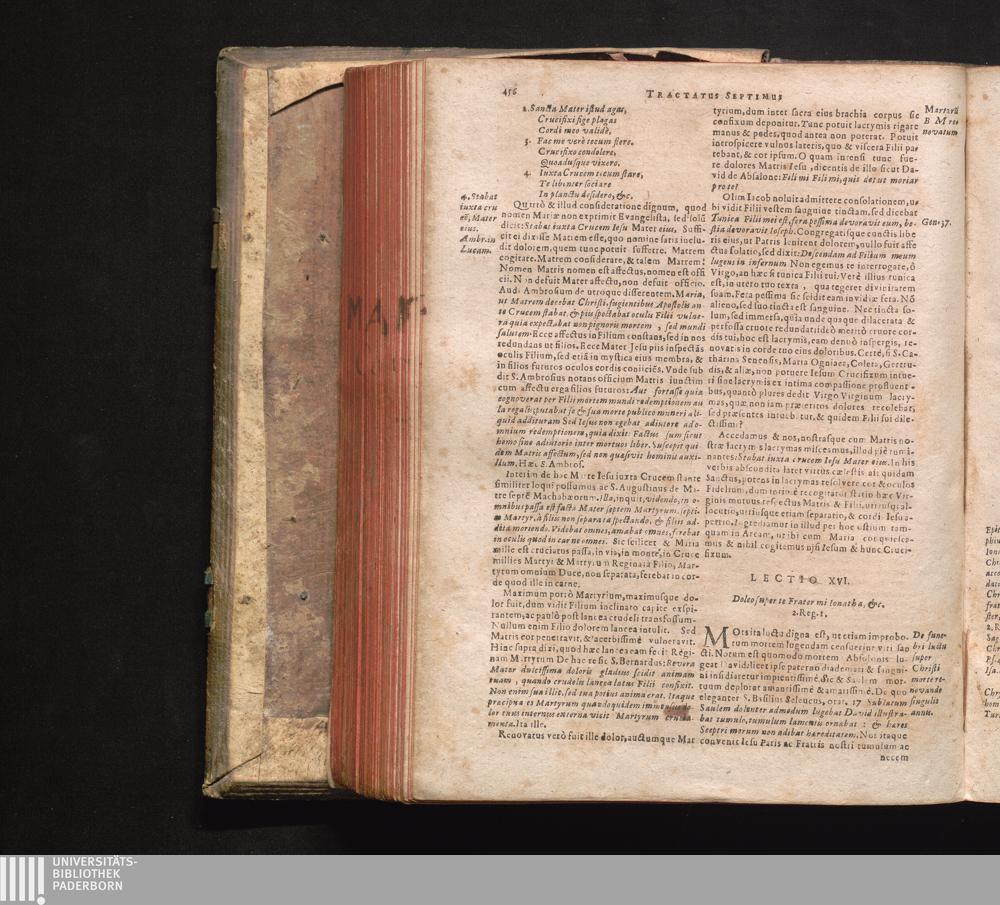 456
TRACTATUS SEPTIMUS
2. Sancta Mater istud agas,
Crucifixi fige plagas
Cordi meo validè,
3. Fac me verè tecum flere,
Crucifixo condolere,
Quoadusque vixero.
4. Iuxta Crucem tecum stare,
Te libenter sociare
In planctu desidero, &c.
4. Stabat
iuxta cru
cē, Mater
eius.
Ambr. in
Lucam.
Quartò & illud consideratione dignum, quod
nomen Mariæ non exprimit Evangelista, sed solū
dicit: Stabat iuxta Crucem Iesu Mater eius, Suffi-
cit ei dixisse Matrem esse, quo nomine satis inclu-
dit dolorem, quem tunc potuit sufferre. Matrem
cogitate. Matrem considerate, & talem Matrem:
Nomen Matris nomen est affectus, nomen est offi
cii. Non defuit Mater affectu, non defuit officio.
Audi Ambrosium de utroque differentem. Maria,
ut Matrem decebat Christi, fugientibus Apostolis an
te Crucem stabat, & piis spectabat oculis Filii vulne-
ra quia expectabat non pignoris mortem, sed mundi
salutem. Ecce affectus in Filium constans, sed in nos
redundans ut filios. Ecce Mater Iesu piis inspectās
oculis Filium, sed etiā in mystica eius membra, &
in filios futuros oculos cordis coniiciēs. Unde sub
dit S. Ambrosius notans officium Matris iunctim
cum affectu erga filios futuros: Aut fortasse quia
cognoverat per Filii mortem mundi redemptionem au
la regalis putabat se & sua morte publico muneri ali-
quid addituram Sed Iesus non egebat adiutore ad o-
mnium redemptionem, quia dixit: Factus sum sicut
homo sine adiutorio inter mortuos liber. Suscepit qui
dem Matris affectum, sed non quæsivit hominis auxi-
lium. Hæc S. Ambros.
Interim de hac Matre Iesu iuxta Crucem stante
similiter loqui possumus ac S. Augustinus de Ma-
tre septē Machabæorum. Illa, inquit, videndo, in o-
mnibus passa est facta Mater septem Martyrum, septi-
es Martyr, à filiis non separata spectando, & filiis ad-
dita moriendo. Videbat omnes, amabat omnes, ferebat
in oculis quod in carne omnes. Sic scilicet & Maria
mille est cruciatus passa, in via, in monte, in Cruce
millies Martyr & Martyrum Regina à Filio, Mar-
tyrum omnium Duce, non separata, ferebat in cor-
de quod ille in carne.
Maximum porrò Martyrium, maximusque do-
lor fuit, dum vidit Filium inclinato capite exspi-
rantem, ac paulò post lancea crudeli transfossum.
Nullum enim Filio dolorem lancea intulit. Sed
Matris cor penetravit, & acerbissimè vulneravit.
Hinc supra dixi, quod hæc lancea eam fecit Regi-
nam Martyrum De hac re sic S. Bernardus: Revera
Mater dulcissima doloris gladius scidit animam
tuam, quando crudelis lancea latus Filii confixit.
Non enim sua illic, sed tua potius anima erat. Itaque
præcipua es Martyrum quandoquidem
lor tuus internus externa vicit Martyrum
menta. Ita ille.
Renovatus verò fuit ille dolor, auctumque Mar
tyrium, dum inter sacra eius brachia corpus sic
confixum deponitur. Tunc potuit lacrymis rigare
manus & pedes, quod antea non poterat. Potuit
introspicere vulnus lateris, quo & viscera Filii pa-
tebant, & cor ipsum. O quam intensi tunc fue-
re dolores Matris Iesu, dicentis de illo sicut Da-
vid de Absalone: Fili mi Fili mi, quis det ut moriar
pro te?
Martyriū
B M re
novatum
Olim Iacob noluit admittere consolationem, u-
bi vidit Filii vestem sanguine tinctam, sed dicebat
Tunica Filii mei est, fera pessima devoravit eum, be-
stia devoravit Ioseph. Congregatisque cunctis libe
ris eius, ut Patris lenirent dolorem, nullo fuit affe
ctus solatio, sed dixit: Descendam ad Filium meum
lugens in infernum Non egemus te interrogare, ô
Virgo, an hæc sit tunica Filii tui: Verè illius tunica
est, in utero tuo texta, qua tegeret divinitatem
suam. Fera pessima sic scidit eam invidiæ fera. Nō
alieno, sed suo tincta est sanguine. Nec tincta so-
lum, sed immersa, quia undequaque dilacerata &
perfossa cruore redundat: ideò meritò cruore cor-
dis tui, hoc est lacrymis, eam denuò inspergis, re-
novatis in corde tuo eius doloribus. Certè, si S. Ca-
tharina Senensis, Maria Ogniaca, Coleta, Gertru-
dis, & aliæ, non potuere Iesum Crucifixum intue-
ri sine lacrymis ex intima compassione profluent-
bus, quantò plures dedit Virgo Virginum lacry-
mas, quæ non iam præteritos dolores recolebat,
sed præsentes intuebatur, & quidem Filii sui dile-
ctissimi?
Gen. 37.
Accedamus & nos, nostrasque cum Matris no-
stræ lacrymis lacrymas misceamus, illud piè rumi-
nantes: Stabat iuxta crucem Iesu Mater eius. In his
verbis abscondita latet virtus cælestis ait quidam
Sanctus, potens in lacrymas resolvere cor & oculos
Fidelium, dum intimè recogitatur statio hæc Vir-
ginis mutuus respectus Matris & Filii, utriusq; al-
locutio, utriusque etiam separatio, & cordis Iesu a-
pertio. Ingrediamur in illud per hoc ostium tam-
quam in Arcam, ut ibi cum Maria conquiesca-
mus & nihil cogitemus nisi Iesum & hunc Cruci-
fixum.
LECTIO XVI.
Doleo super te Frater mi Ionatha, &c.
2. Reg. 1.
MOrs ita luctu digna est, ut etiam improbo-
rum mortem lugendam censuerint viri San
cti. Notum est quomodo mortem Absolonis lu-
geat David, licet ipse paterno diademati & sangui-
ni insidiaretur impientissimè. Sic & Saulem mor-
tuum deplorat amantissimè & amarissimè. De quo
eleganter S. Basilius Seleucus, orat. 17 Sublatum
Saulem dolenter admodum lugebat David illustra-
bat tumulo, tumulum lamentis ornabat: & hæres
Sceptri morum non adibat hæreditatem. Nos itaque
convenit Iesu Patis ac Fratris nostri tumulum ac
De fune-
bri luctu
super
Christi
morte re-
novando
singulis
annis.
necem
MAR
UNIVERSITÄTS-
BIBLIOTHEK
PADERBORN